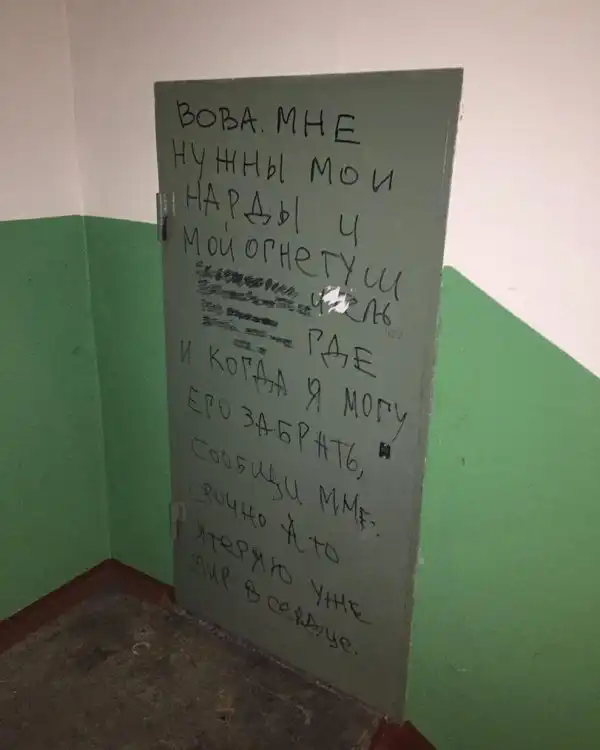 ВОВА. МНЕ
НУЖНЫ МОИ
НАРДЫ И
МОЙ ОГНЕТУШ
ИТЕЛЬ
ГДЕ
И КОГДА Я МОГУ
ЕГО ЗАБРАТЬ,
СООБЩИ МНЕ.
СРОЧНО А ТО
ЯТЕРЯЮ УЖЕ
МИР В СЕРДЦЕ.